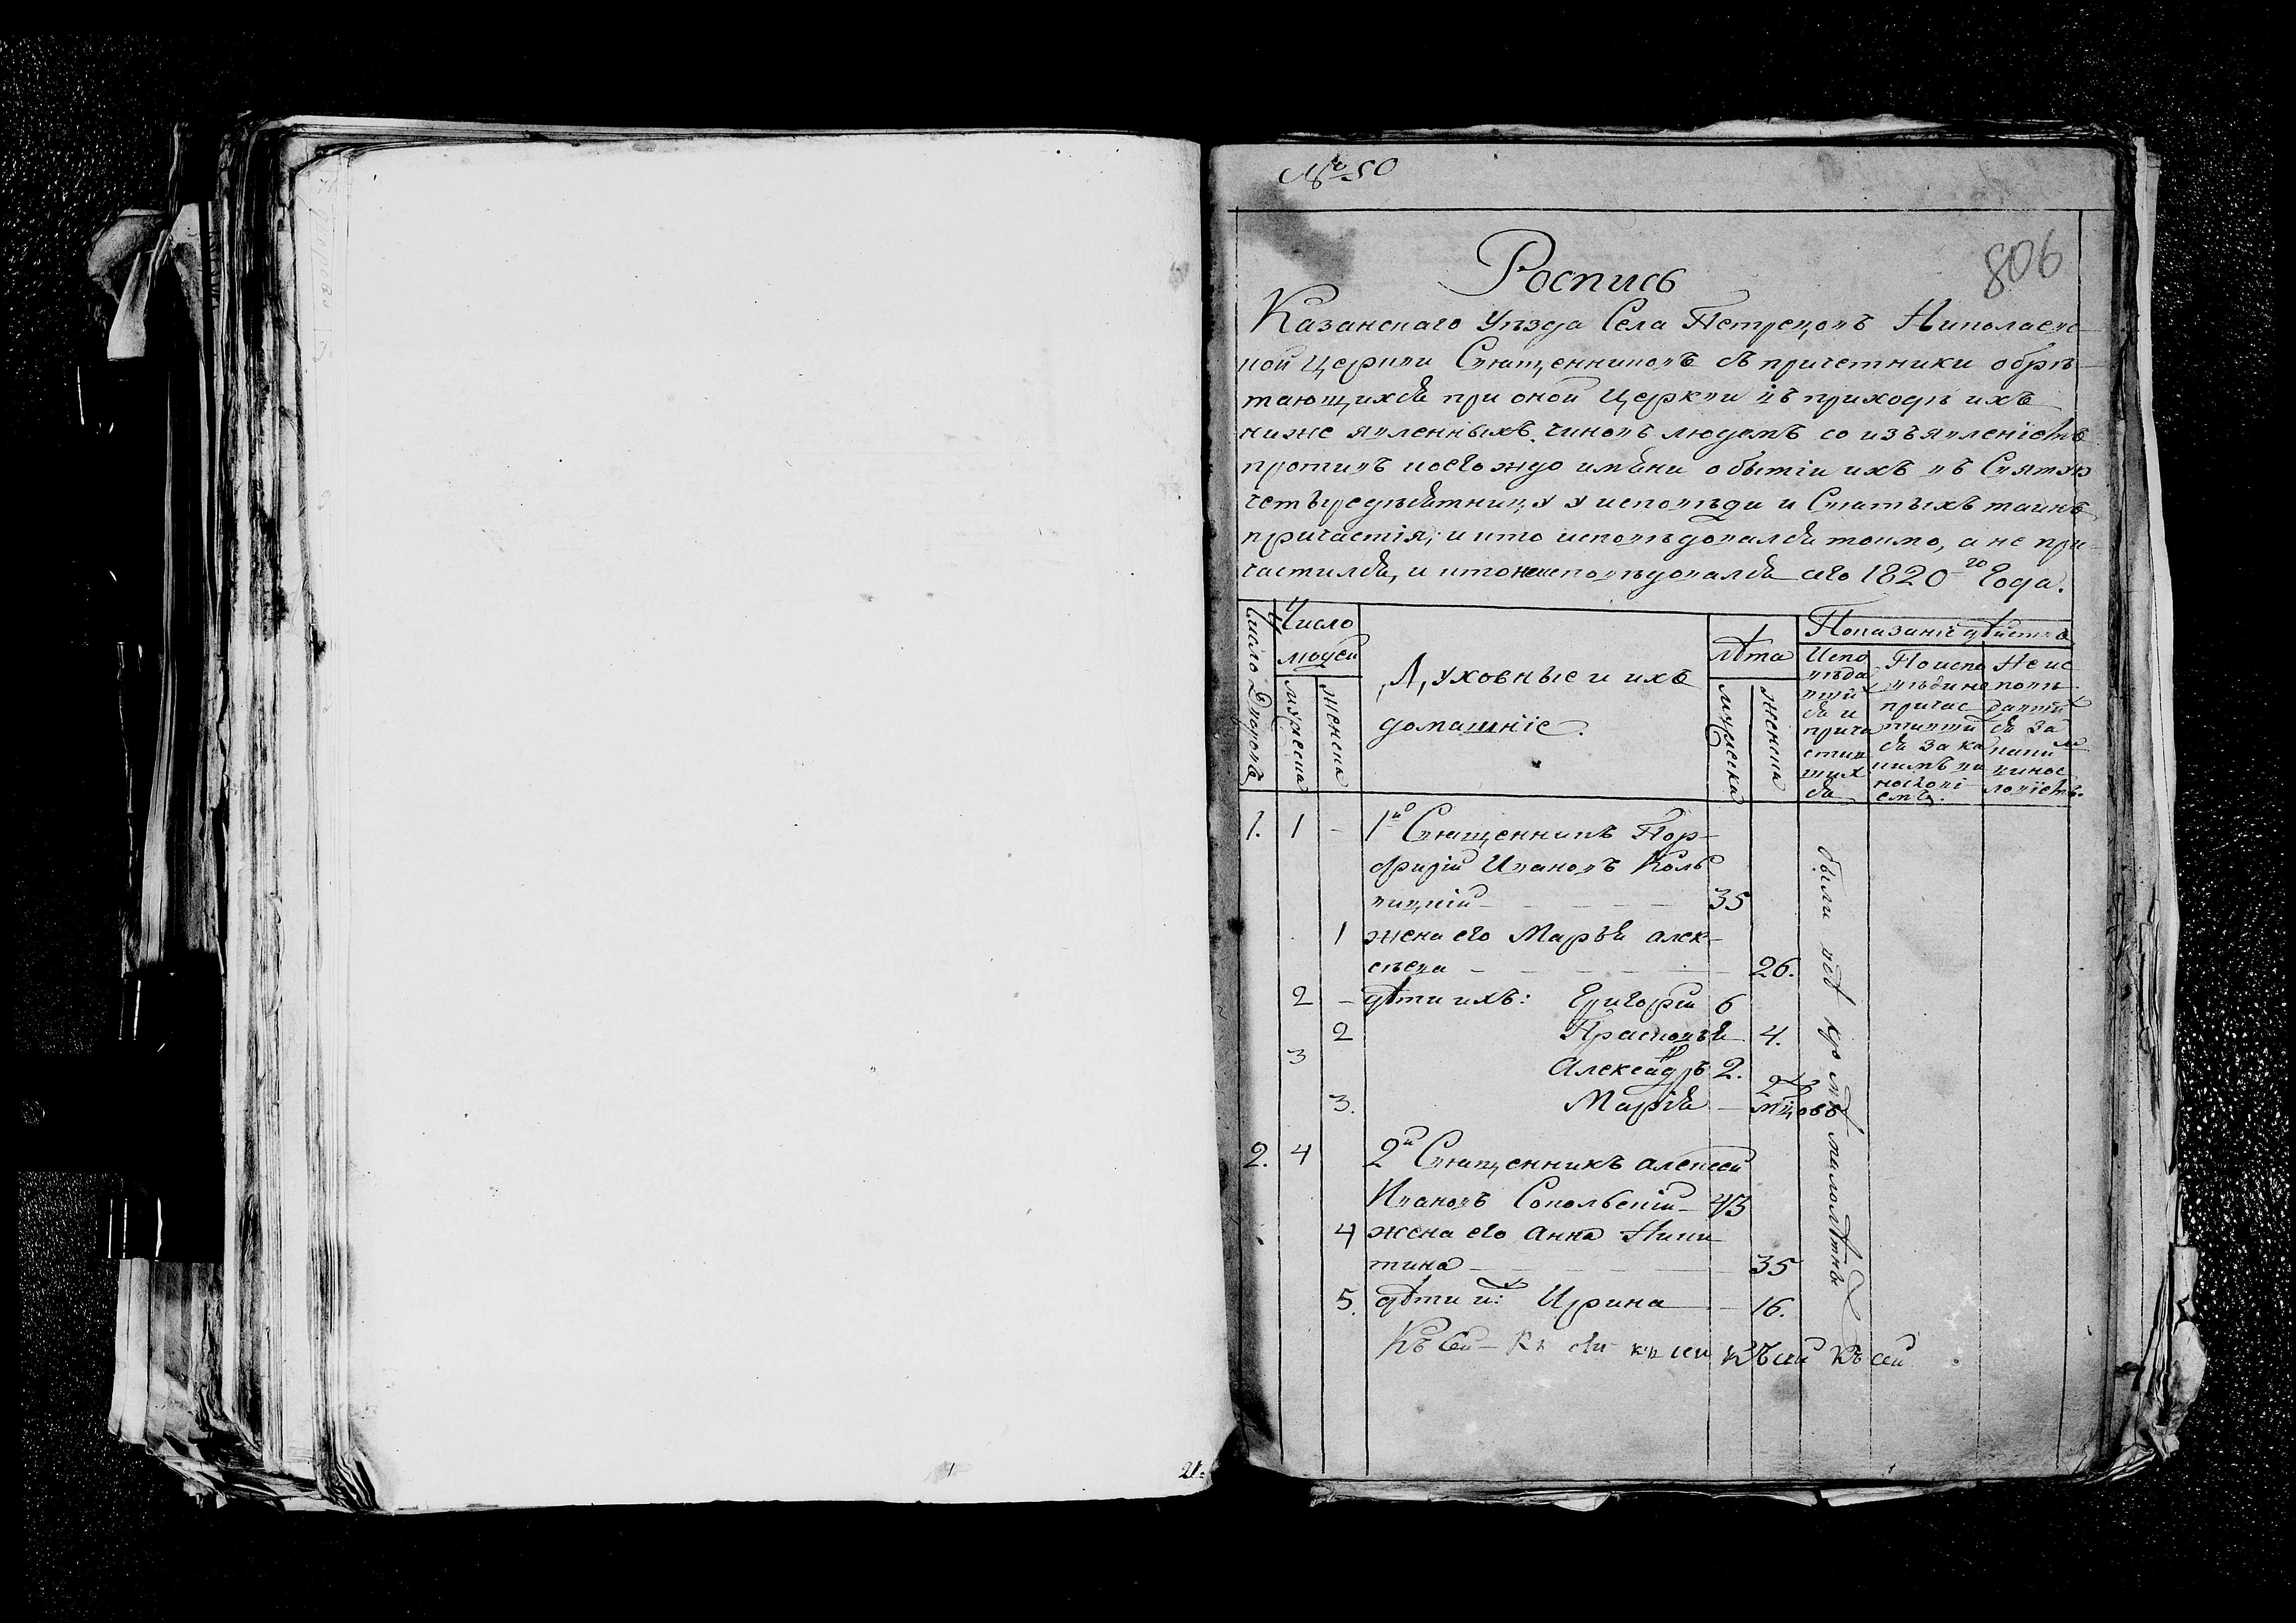 № 50
806
Роспись
Казанскаго Уѣзда Села Пестрецовъ Николаевс-
кой Церкви Священниковъ съ причетники обрѣ-
тающихся при оной Церкви въ приходѣ ихъ
ниже явленныхъ чиновъ людемъ со изъявленіемъ
противъ коегождо имени о бытіи ихъ въ Святую
четыредесятницу у исповѣди и Святыхъ таинъ
причастія; и кто исповѣдовался токмо, а не при-
частился, и кто неисповѣдовался сего 1820го Года.
Число Дворовъ
Число
людей
мужеска
женска
Духовные и ихъ
домашніе.
лѣта
мужеска
женска
Показаніе дѣйства
Испо
вѣда
вших
ся и
прича
стив
ших
ся
По испо
вѣди не
причас
тивши
ся за ка
кимъ ви
нословi
емъ.
Не ис
повѣ
давших
ся за
каким
винос
ловіемъ.
1. 1 - 1й Священникъ Пор-
фирій Ивановъ Коль
вицкій 35
1 жена его Марья алек-
сѣева 26.
2 - дѣти ихъ: Григорій 6
2 Прасковья 4.
3 Александръ 2.
3. Марія - 2хъ мцовъ
были всѣ кромѣ малолѣтныхъ
2. 4 2й Священникъ алексей
Ивановъ Сокольскій 43
4 жена его Анна Ники
тина 35
5. дѣти их: Ирина - 16.
Къ сей
къ сей къ сей къ сей
21.